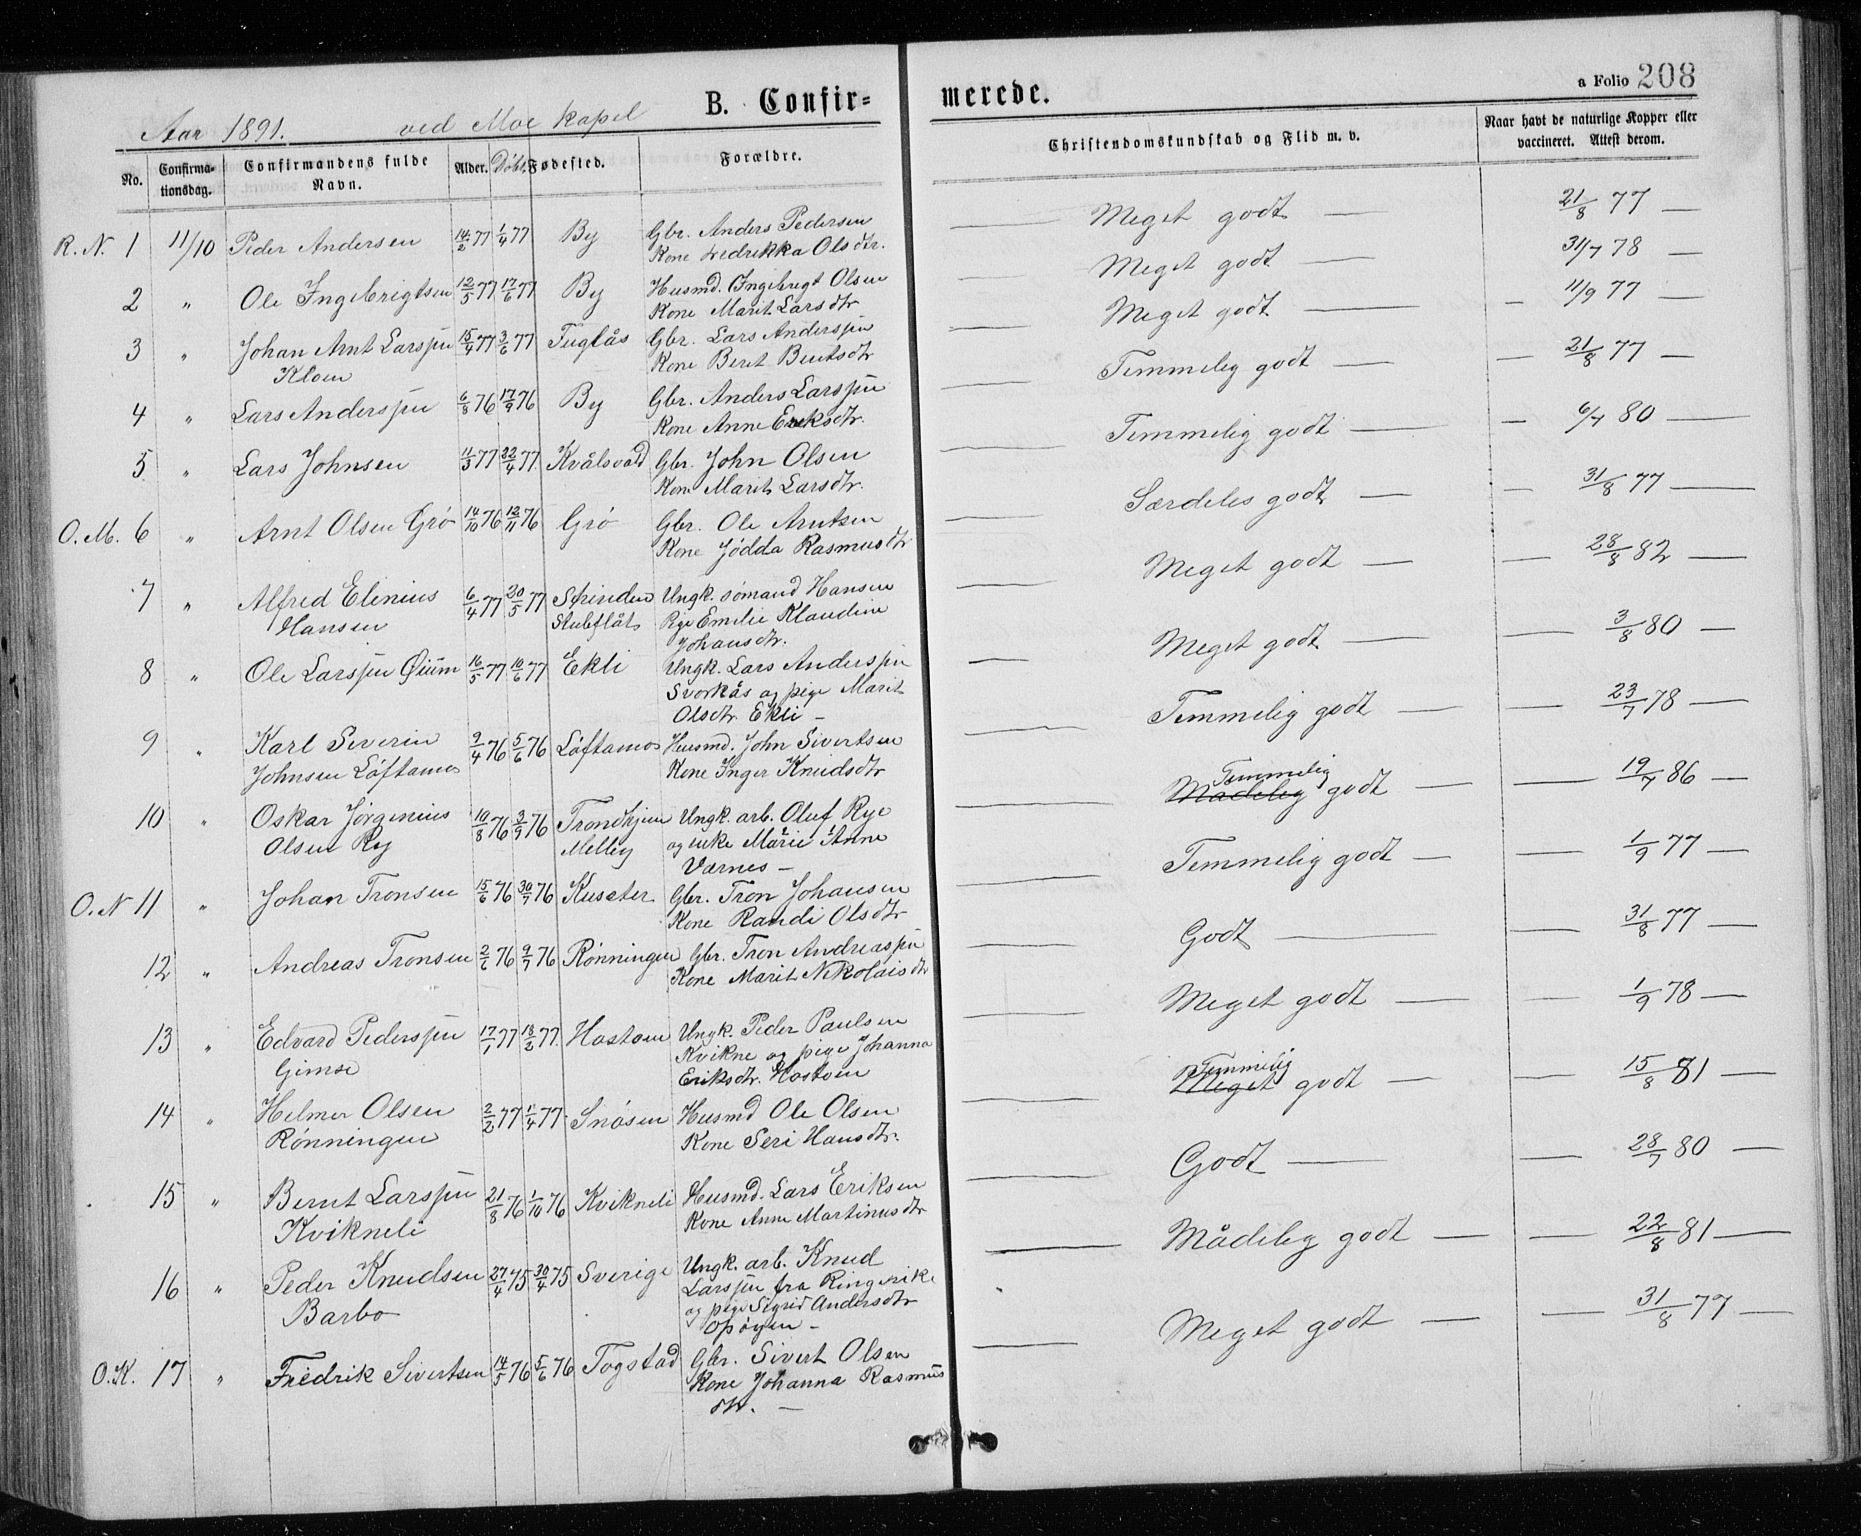 B. Confirmerede.
a Folio 208
Aar 1891. ved Moe kapel
No. Confirmationsdag. Confirmandens fulde Navn. Alder. Døbt. Fødested. Forældre. Christendomskundskab og Flid m. v. Naar havt de naturlige Kopper eller vaccineret. Attest derom.
R. N. 1 11/10 Peder Andersen 14/2 77 1/4 77 By Gbr. Anders Pedersen Meget godt 21/8 77
Kone Fredrikka Olsdtr.
2 " Ole Ingebrigtsen 12/5 77 17/6 77 By Husmd. Ingebrigt Olsen Meget godt 31/7 78
Kone Marit Larsdtr
3 " Johan Arnt Larssen 15/4 77 3/6 77 Fuglås Gbr. Lars Anderssen Meget godt 11/9 77
Kloen Kone Berit Bentsdtr
4 " Lars Anderssen 6/8 76 17/9 76 By Gbr. Anders Larssen Temmelig godt 21/8 77
Kone Anne Eriksdtr.
5 " Lars Johnsen 11/3 77 22/4 77 Kvålsvold Gbr. John Olsen Temmelig godt 6/7 80
Kone Marit Larsdtr.
O. M. 6 " Arnt Olsen Grø 14/10 76 12/11 76 Grø Gbr. Ole Arntsen Særdeles godt 31/8 77
Kone Jødda Rasmusdtr
7 " Alfred Elenius 6/4 77 20/5 77 Strinden Ungk. sømand Hansen Meget godt 28/8 82
Hansen Stubflåt Pige Emilie Klaudine
Johansdtr.
8 " Ole Larssen Øium 16/5 77 10/6 77 Ekli Ungk. Lars Anderssen Meget godt 3/8 80
Svorkås og pige Marit
Olsdtr. Ekli
9 " Karl Severin 9/4 76 5/6 76 Løftamo Husmd. John Sivertsen Temmelig godt 23/7 78
Johnsen Løftamo Kone Inger Knudsdtr
10 " Oskar Jørgenius 10/8 76 3/9 76 Trondhjem Ungk. arb. Oluf Rye Temmelig Mådelig godt 19/7 86
Olsen Ry Melby og enke Marie Anne
Værnes
O. N 11 " Johan Tronsen 15/6 76 30/7 76 Kuseter Gbr. Tron Johansen Temmelig godt 1/9 77
Kone Randi Olsdtr
12 " Andreas Tronsen 2/6 76 9/7 76 Rønningen Gbr. Tron Andreassen Godt 31/8 77
Kone Marit Nikolaisdtr
13 " Edvard Pederssen 17/1 77 18/2 77 Hostoen Ungk. Peder Paulsen Meget godt 1/9 78
Gimse Kvikne og pige Johanna
Eriksdtr. Hostoen
14 " Helmer Olsen 2/2 77 1/4 77 Snøsen Husmd Ole Olsen Temmelig Meget godt 15/8 81
Rønningen Kone Seri Hansdtr.
15 " Bernt Larssen 21/8 76 1/10 76 Kvikneli Husmd. Lars Eriksen Godt 28/7 80
Kvikneli Kone Anne Martinusdtr
16 " Peder Knudsen 27/4 75 30/4 75 Sverige Ungk. arb. Knud Mådelig godt 22/8 81
Barbo Larssen fra Ringerike
og pige Sigrid Andersdtr
Opøyen
O. K. 17 " Fredrik Sivertsen 14/5 76 5/6 76 Togstad Gbr. Sivert Olsen Meget godt 31/8 77
Kone Johanna Rasmus
dtr.